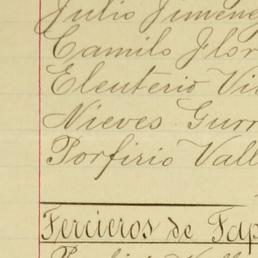 Julio Jimene
Camilo Flor
Eleuterio Vi
Nieves Gurr
Porfirio Vall
Tercieros de Tap